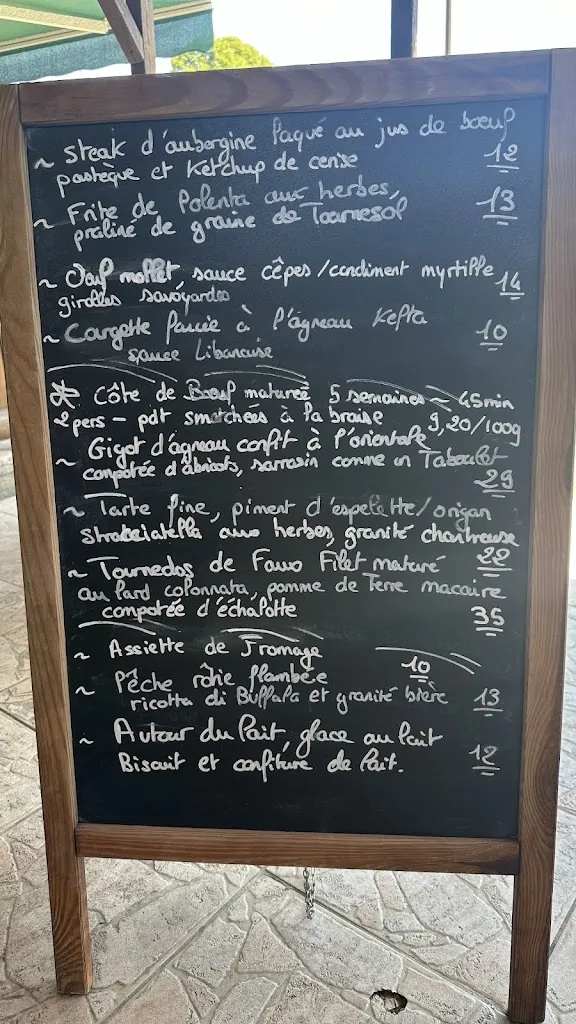 ~ Steak d'aubergine laqué au jus de bœuf
pastèque et Ketchup de cerise 12
~ Frite de Polenta aux herbes, 13
praliné de graine de Tournesol
~ Œuf mollet, sauce cêpes / condiment myrtille 14
girolles savoyardes
~ Courgette farcie à l'agneau Kefta 10
sauce Libanaise
* Côte de Bœuf maturée 5 semaines ~ 45min
2 pers - pdt smatchées à la braise 9,20/100g
~ Gigot d'agneau confit à l'orientale
compotée d'abricots, sarrasin comme un Taboulet
29
~ Tarte fine, piment d'espelette/origan
stracciatella aux herbes, granité chartreuse
22
~ Tournedos de Faux Filet maturé
au lard colonnata, pomme de Terre macaire
compotée d'échalotte 35
~ Assiette de Fromage 10
~ Pêche rôtie flambée
ricotta di Buffala et granité bière 13
~ Autour du lait, glace au lait
Biscuit et confiture de lait. 12